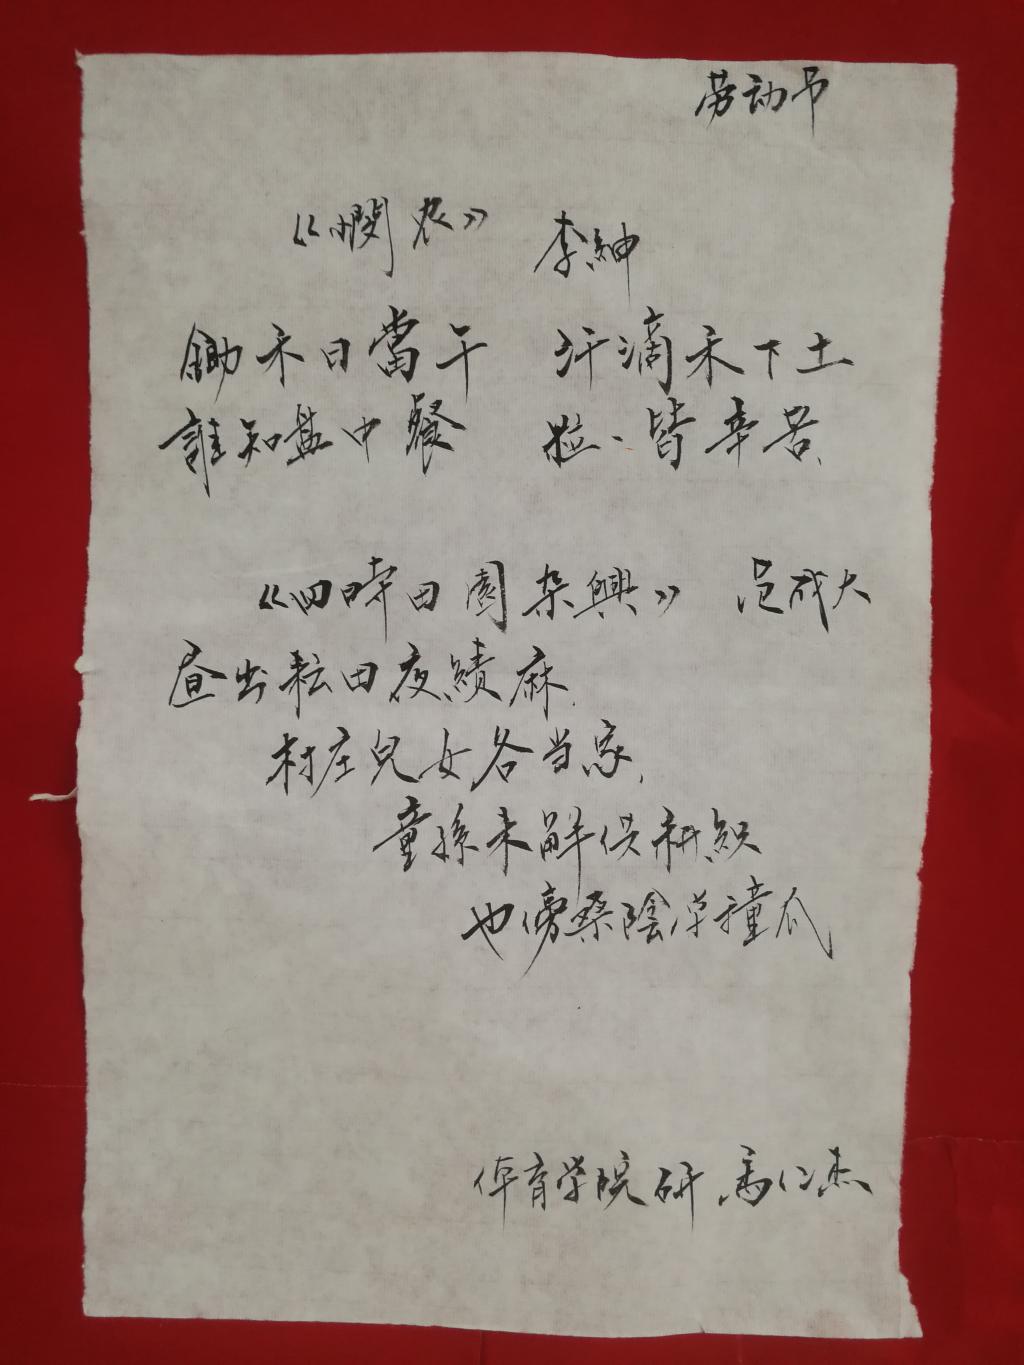 劳动节
《憫农》 李紳
鋤禾日當午 汗滴禾下土
誰知盤中餐 粒、皆辛苦、
《四时田園杂興》 范成大
昼出耘田夜績麻、
村庄兒女各当家、
童孫未解供耕织
也傍桑陰学種瓜
体育学院 研 馬仁杰